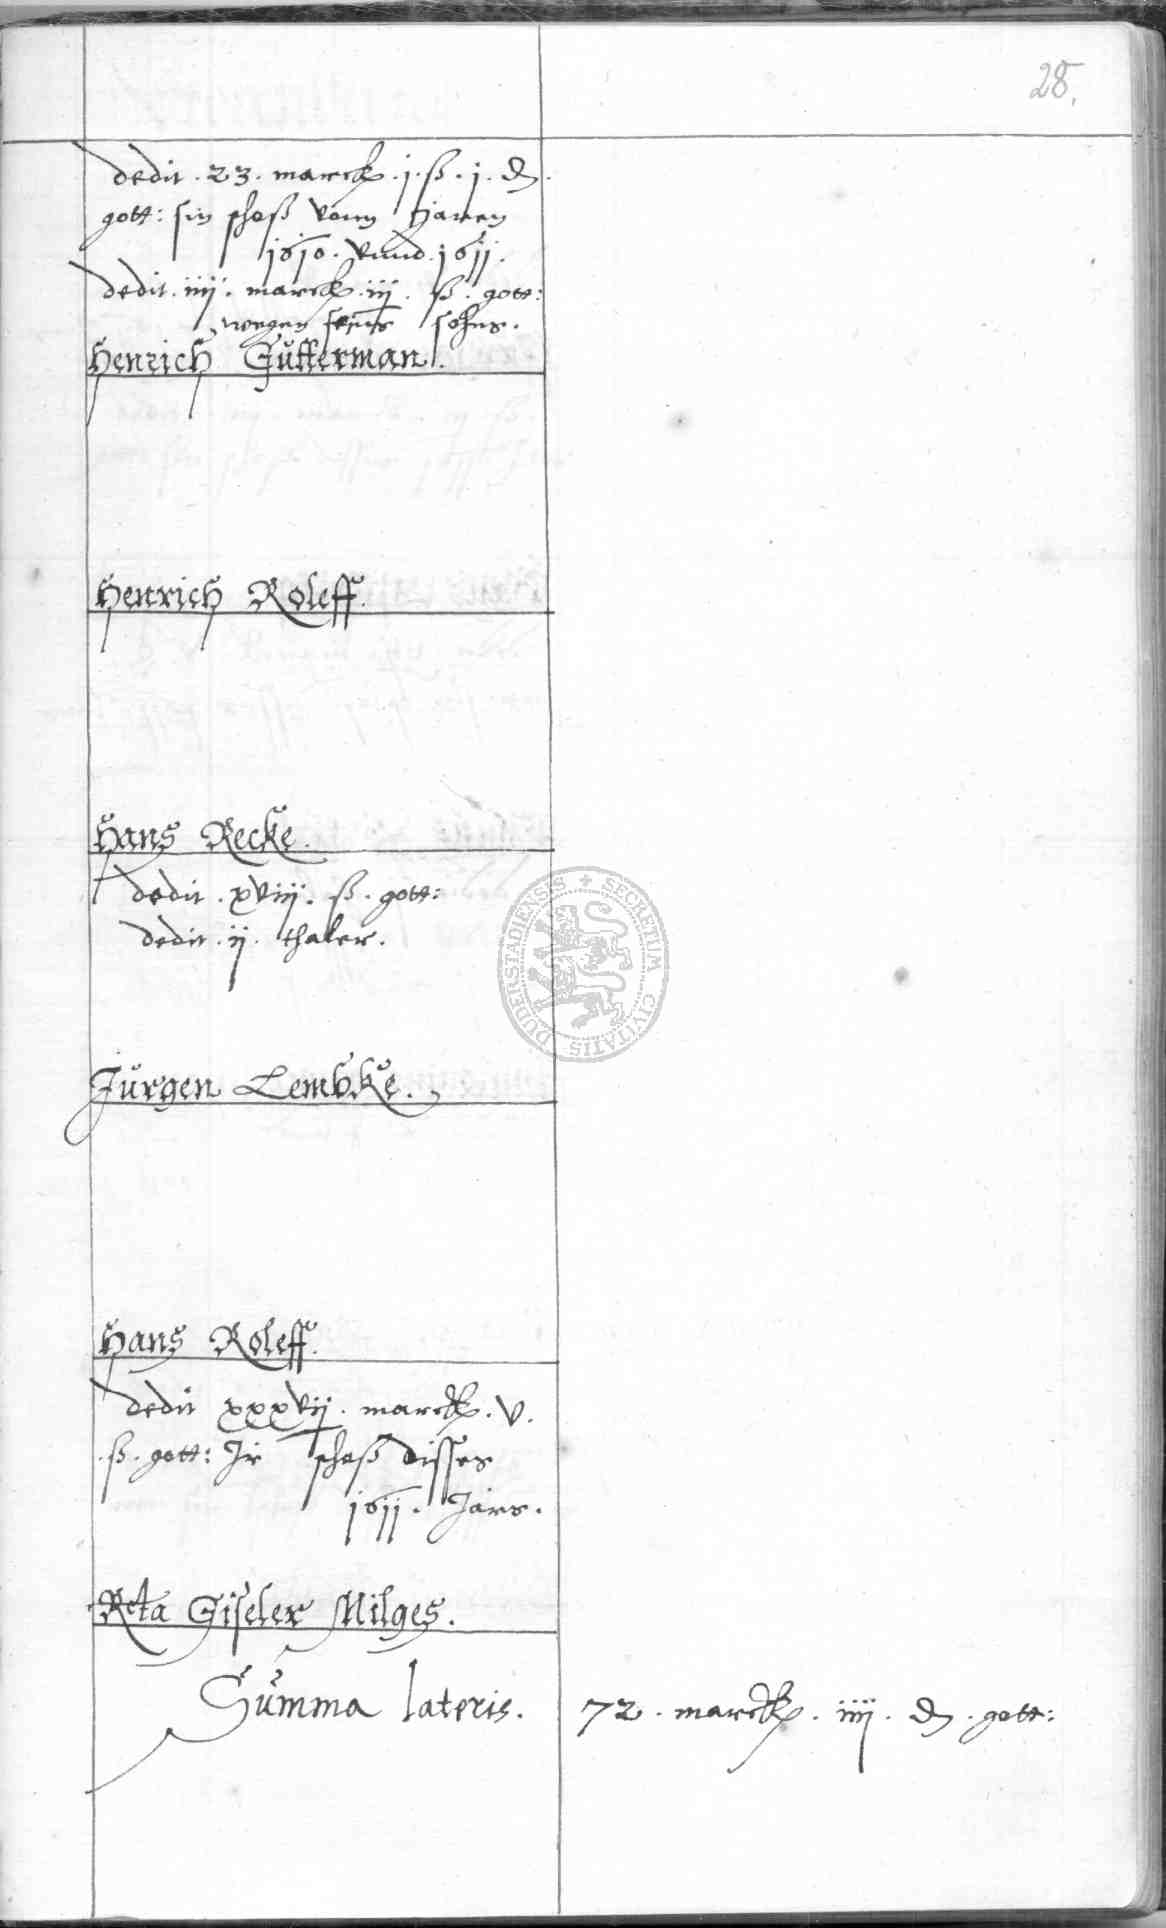 28.
dedit . 23 . marck . j . ß . j . d .
gott: sin schoß vonn Jaren
1610 . vnnd . 1611 .
dedit . iiij . marck . iij . ß . gott:
wegen seins sohns .
Henrich Gütterman .
Henrich Roleff .
Hans Recke .
dedit . xviij . ß . gott:
dedit . ij . thaler .
Jürgen Lembke .
Hans Roleff .
dedit xxxvij . marck . v .
. ß . gott: Ir schoß disses
1611 . Jars .
Rcta Giseler Milges .
Summa lateris . 72 . marck . iiij . d . gott:
SECRETUM CIVITATIS DUDERSTADIENSIS